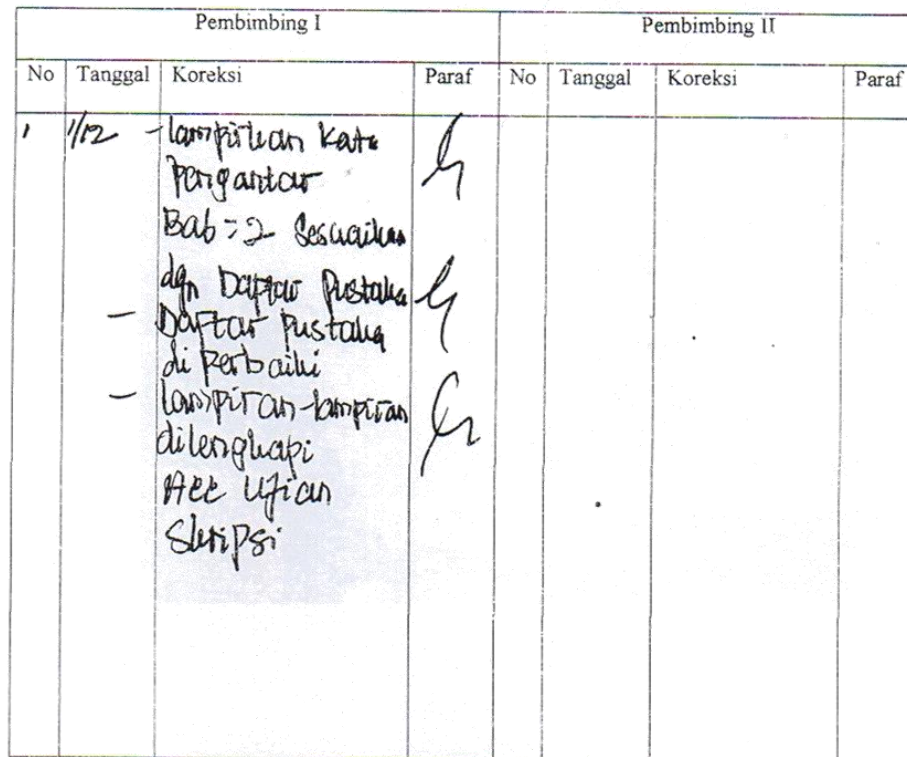 Pembimbing I Pembimbing II
No Tanggal Koreksi Paraf No Tanggal Koreksi Paraf
1 1/12 - lampirkan Kata
Pengantar
Bab = 2 Sesuaikan
dgn Daftar Pustaka
- Daftar Pustaka
di perbaiki
- lampiran-lampiran
dilengkapi
Acc Ujian
Skripsi